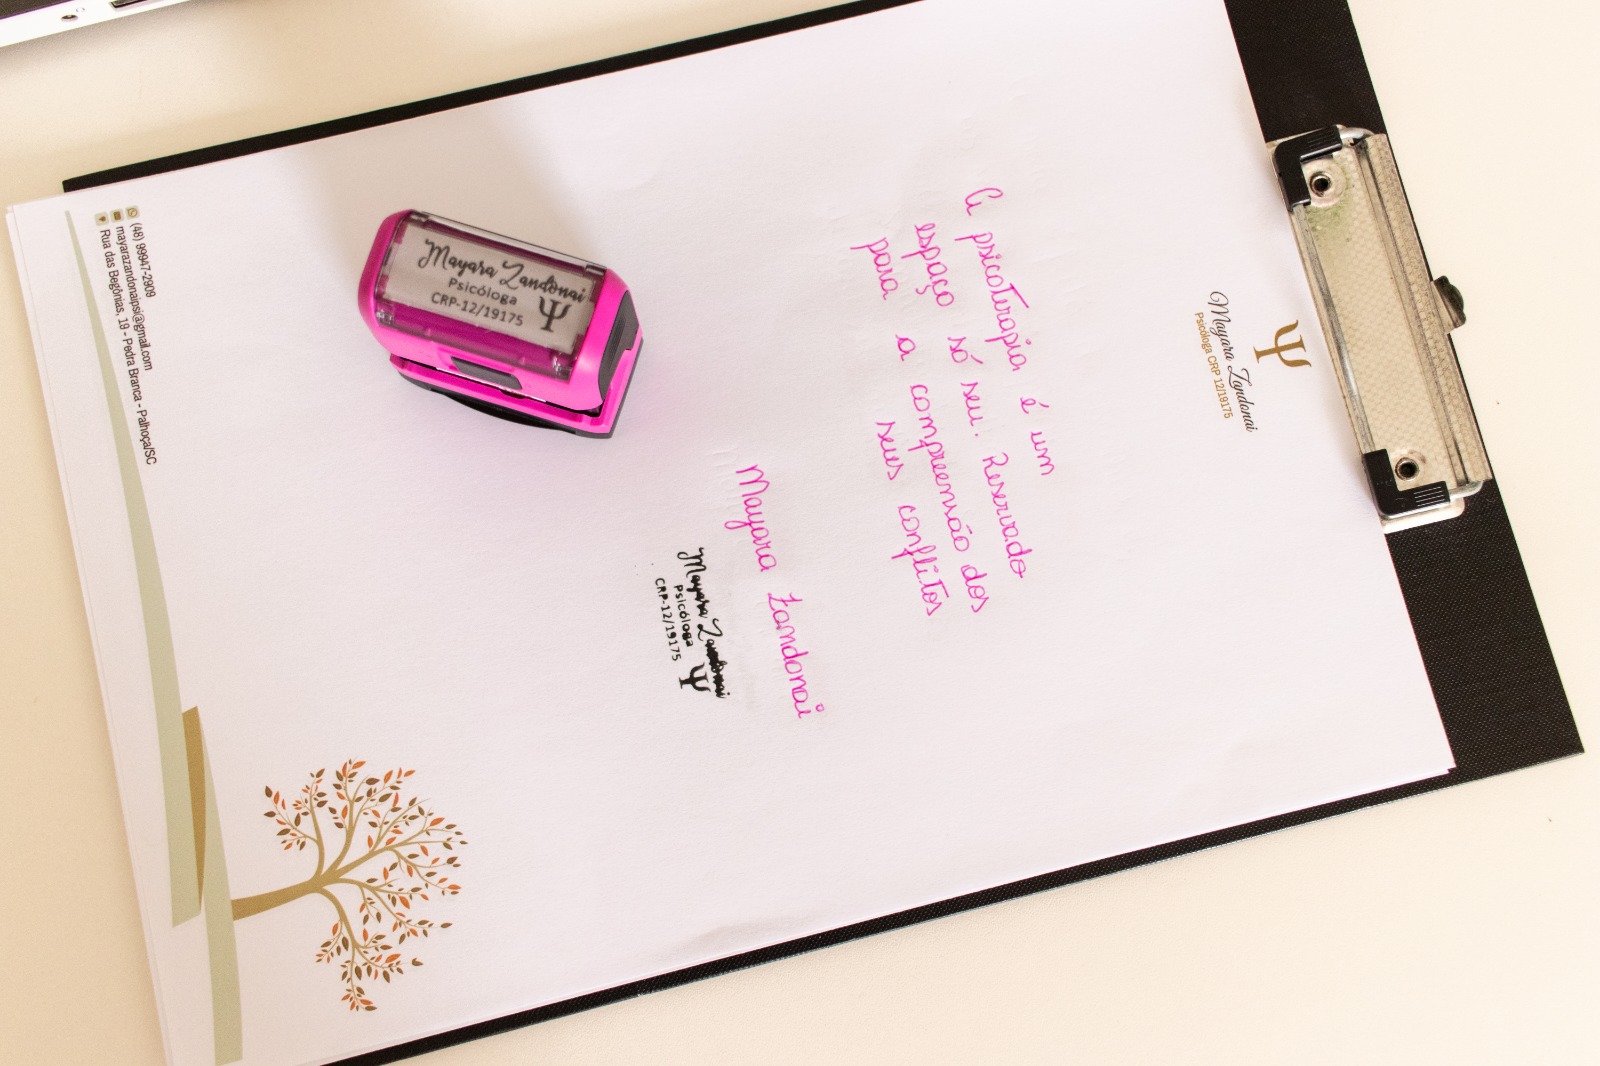 Mayara Zandonai
Psicóloga CRP 12/19175
A psicoterapia é um
espaço só seu. Reservado
para a compreensão dos
seus conflitos
Mayara Zandonai
Mayara Zandonai
Psicóloga
CRP-12/19175
Mayara Zandonai
Psicóloga
CRP-12/19175
(48) 99947-2909
mayarazandonaipsi@gmail.com
Rua das Begônias, 19 - Pedra Branca - Palhoça/SC